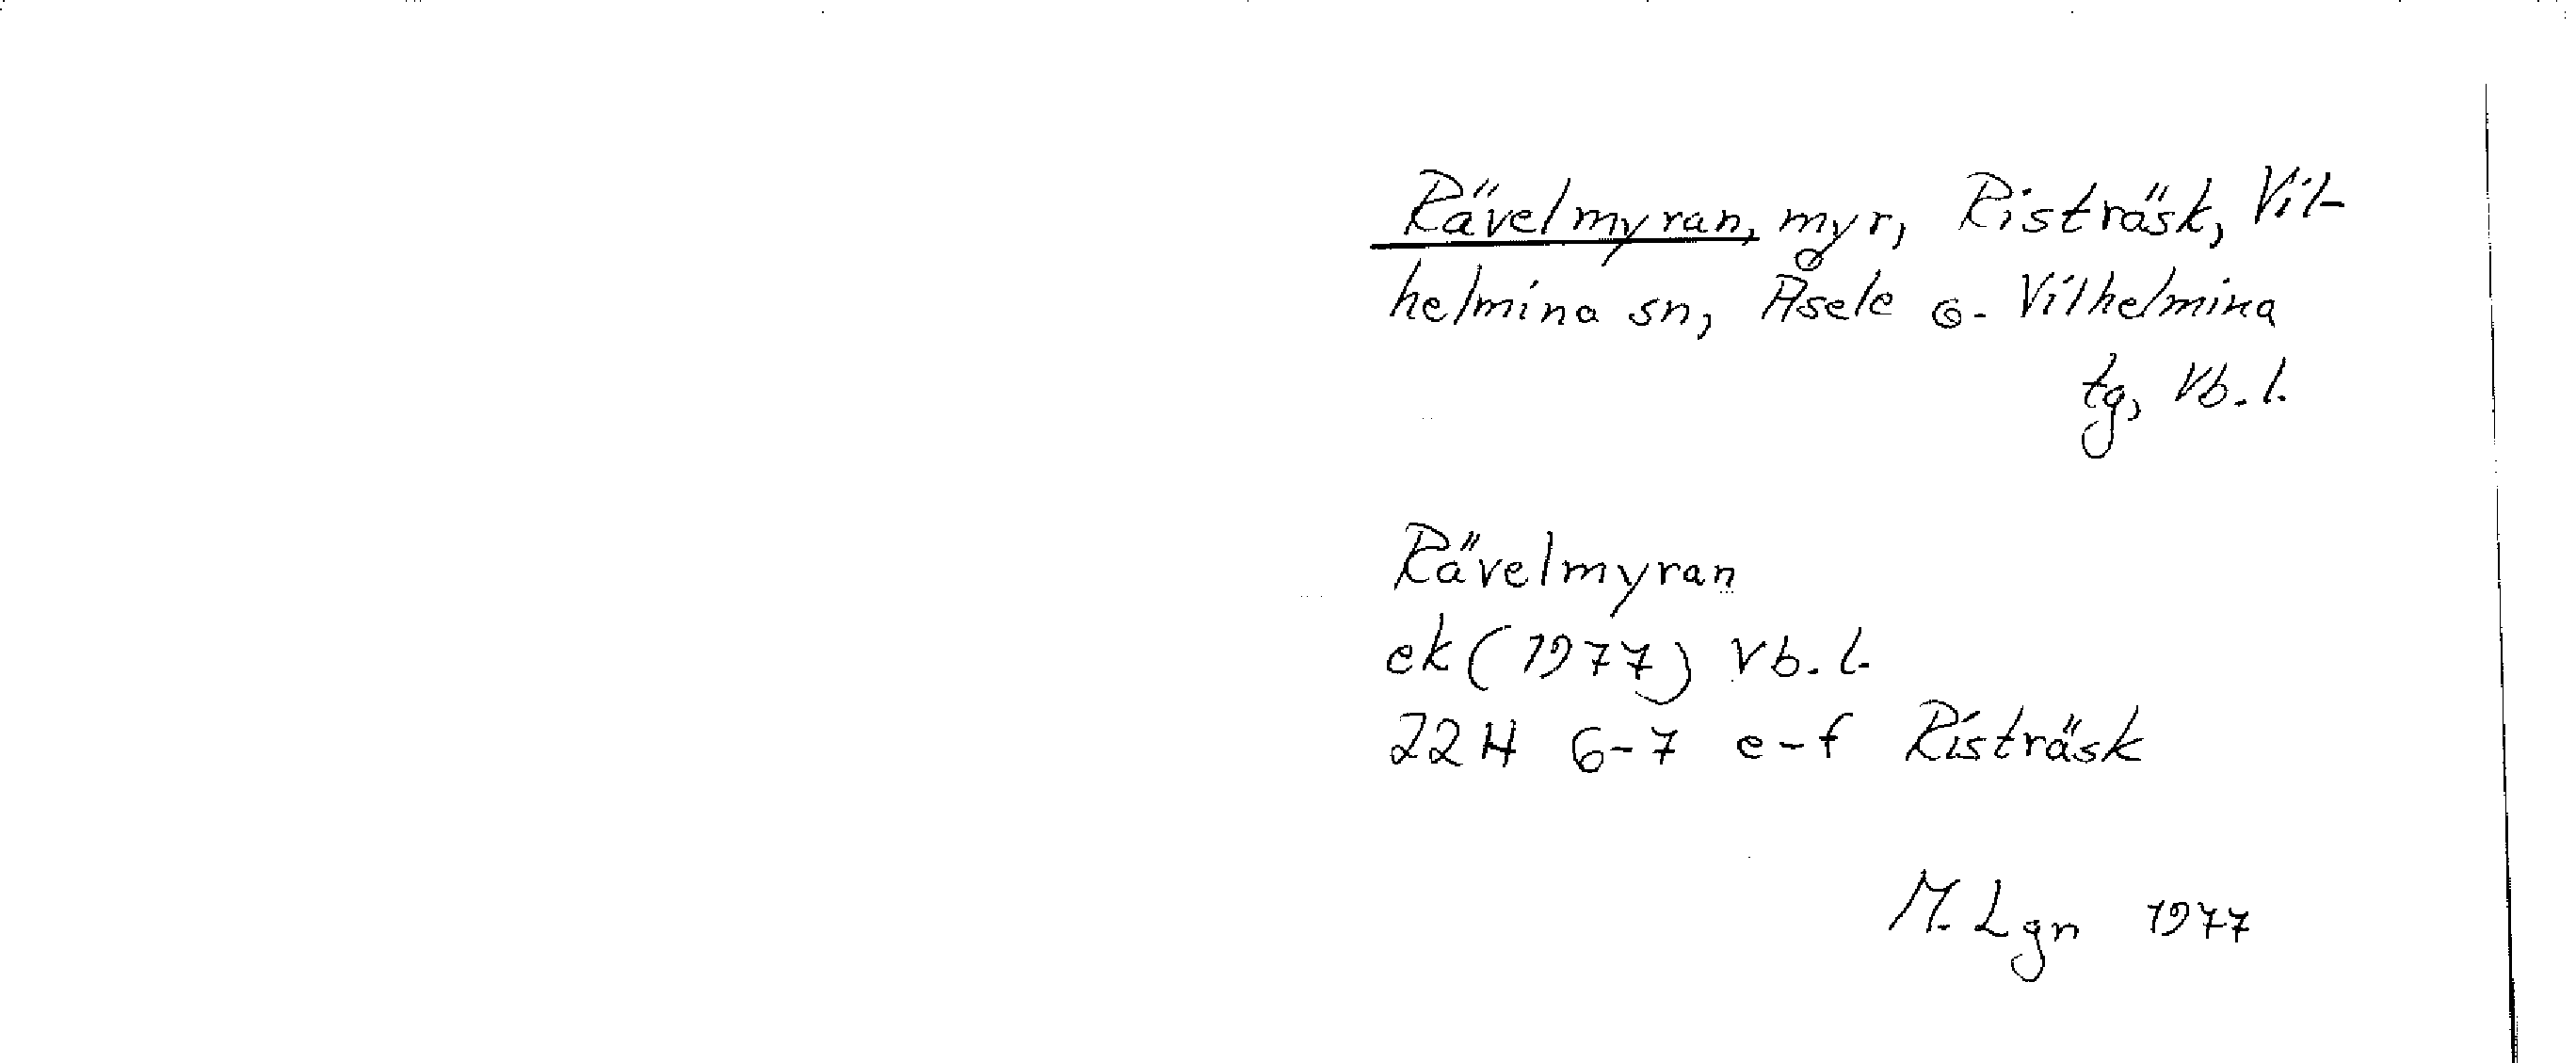 Rävelmyran, myr, Risträsk, Vil-
helmina sn, Åsele o. Vilhelmina
tg, Vb. l.
Rävelmyran
ek (1977) Vb. l.
22 H 6-7 e-f Risträsk
M. Lgn 1977